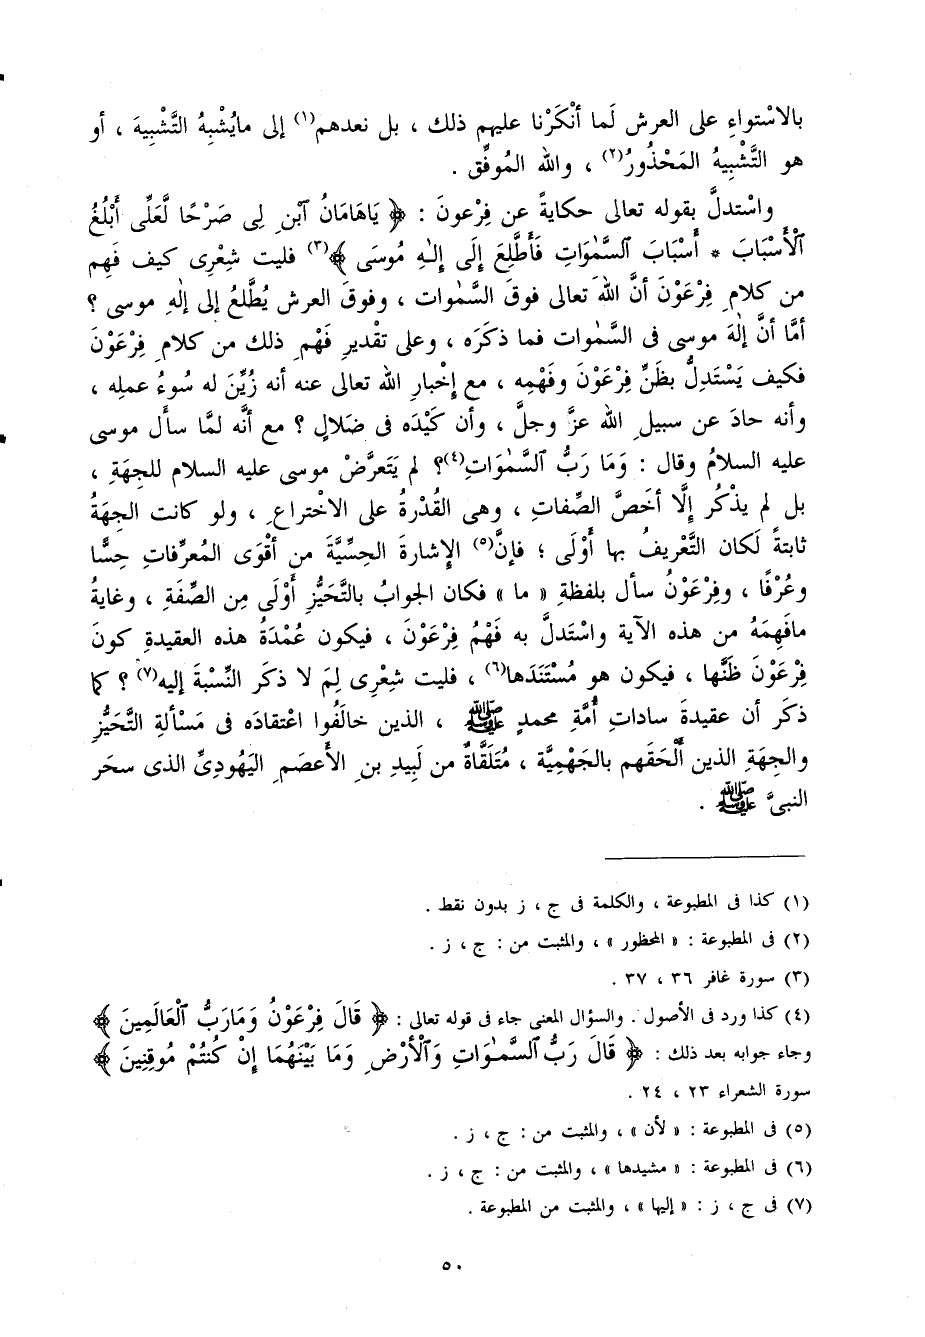 بالاسْتواءِ على العرش لَما أنْكَرْنا عليهم ذلك ، بل نعدهم(١) إلى مايُشْبِهُ التَّشْبِيهَ ، أو
هو التَّشْبِيهُ المَحْذُورُ(٢) ، والله المُوفِّق .
واسْتدلَّ بقوله تعالى حكايةً عن فِرْعونَ : ﴿ يَاهَامَانُ ٱبْنِ لِى صَرْحًا لَّعَلِّى أَبْلُغُ
ٱلْأَسْبَابَ * أَسْبَابَ ٱلسَّمٰوَاتِ فَأَطَّلِعَ إِلَى إِلٰهِ مُوسَى ﴾(٣) فليت شِعْرِى كيف فَهِم
من كلامِ فِرْعَوْنَ أنَّ اللهَ تعالى فوقَ السَّمٰوات ، وفوقَ العرش يُطَّلعُ إلى إلٰهِ موسى ؟
أمَّا أنَّ إلٰهَ موسى فى السَّمٰوات فما ذكَرَه ، وعلى تقْديرِ فَهْمِ ذلك من كلامِ فِرْعَوْنَ
فكيف يَسْتَدِلُّ بظَنِّ فِرْعَوْنَ وفَهْمِه ، مع إخْبارِ الله تعالى عنه أنه زُيِّنَ له سُوءُ عملِه ،
وأنه حادَ عن سبيلِ الله عزَّ وجلَّ ، وأن كَيْدَه فى ضَلالٍ ؟ مع أنَّه لمَّا سأل موسى
عليه السلامُ وقال : وَمَا رَبُّ ٱلسَّمٰوَاتِ(٤)؟ لم يَتَعرَّضْ موسى عليه السلام للجِهَةِ ،
بل لم يذْكُر إلَّا أخَصَّ الصِّفاتِ ، وهى القُدْرةُ على الاخْتراعِ ، ولو كانت الجِهَةُ
ثابتةً لَكان التَّعْريفُ بها أوْلَى ؛ فإنَّ(٥) الإشارةَ الحِسِّيَّةَ من أقْوَى المُعرِّفاتِ حِسًّا
وعُرْفًا ، وفِرْعَوْنُ سأل بلفظةِ « ما » فكان الجوابُ بالتَّحَيُّزِ أَوْلَى مِن الصِّفَةِ ، وغايةُ
مافَهِمَهُ من هذه الآية واسْتَدلَّ به فَهْمُ فِرْعَوْنَ ، فيكون عُمْدَةُ هذه العقيدةِ كونَ
فِرْعَوْنَ ظَنَّها ، فيكون هو مُسْتَنَدَها(٦) ، فليت شِعْرِى لِمَ لا ذكَر النِّسْبةَ إليه(٧) ؟ كما
ذكَر أن عقيدةَ ساداتِ أُمَّةِ محمدٍ ﷺ ، الذين خالَفُوا اعْتقادَه فى مَسْألةِ التَّحَيُّزِ
والجِهَةِ الذين ألْحَقَهم بالجَهْمِيَّة ، مُتَلَقَّاةٌ من لَبِيدِ بنِ الأعصَمِ اليَهُودِىِّ الذى سحَر
النبىَّ ﷺ .
(١) كذا فى المطبوعة ، والكلمة فى ج ، ز بدون نقط .
(٢) فى المطبوعة : « المحظور » ، والمثبت من : ج ، ز .
(٣) سورة غافر ٣٦ ، ٣٧ .
(٤) كذا ورد فى الأصول . والسؤال المعنى جاء فى قوله تعالى : ﴿ قَالَ فِرْعَوْنُ وَمَارَبُّ ٱلْعَالَمِينَ ﴾
وجاء جوابه بعد ذلك : ﴿ قَالَ رَبُّ ٱلسَّمٰوَاتِ وَٱلْأَرْضِ وَمَا بَيْنَهُمَا إِنْ كُنْتُمْ مُوقِنِينَ ﴾
سورة الشعراء ٢٣ ، ٢٤ .
(٥) فى المطبوعة : « لأن » ، والمثبت من : ج ، ز .
(٦) فى المطبوعة : « مشيدها » ، والمثبت من : ج ، ز .
(٧) فى ج ، ز : « إليها » ، والمثبت من المطبوعة .
٥٠